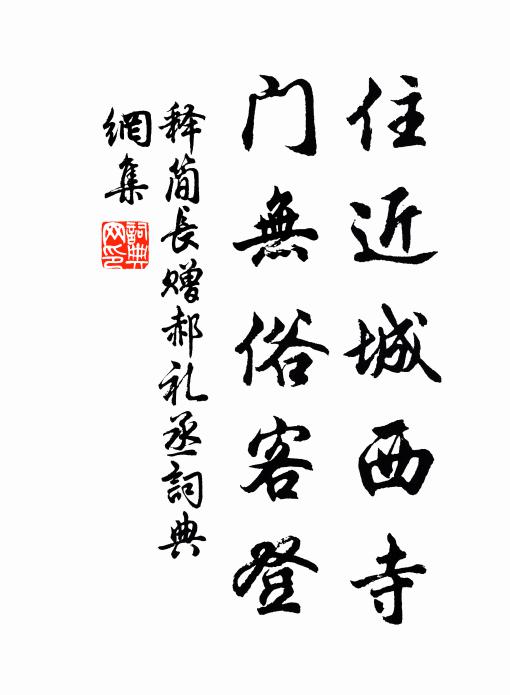 住近城西寺
门無俗客登
释简長赠郝礼丞詞典
網集
詞典网印